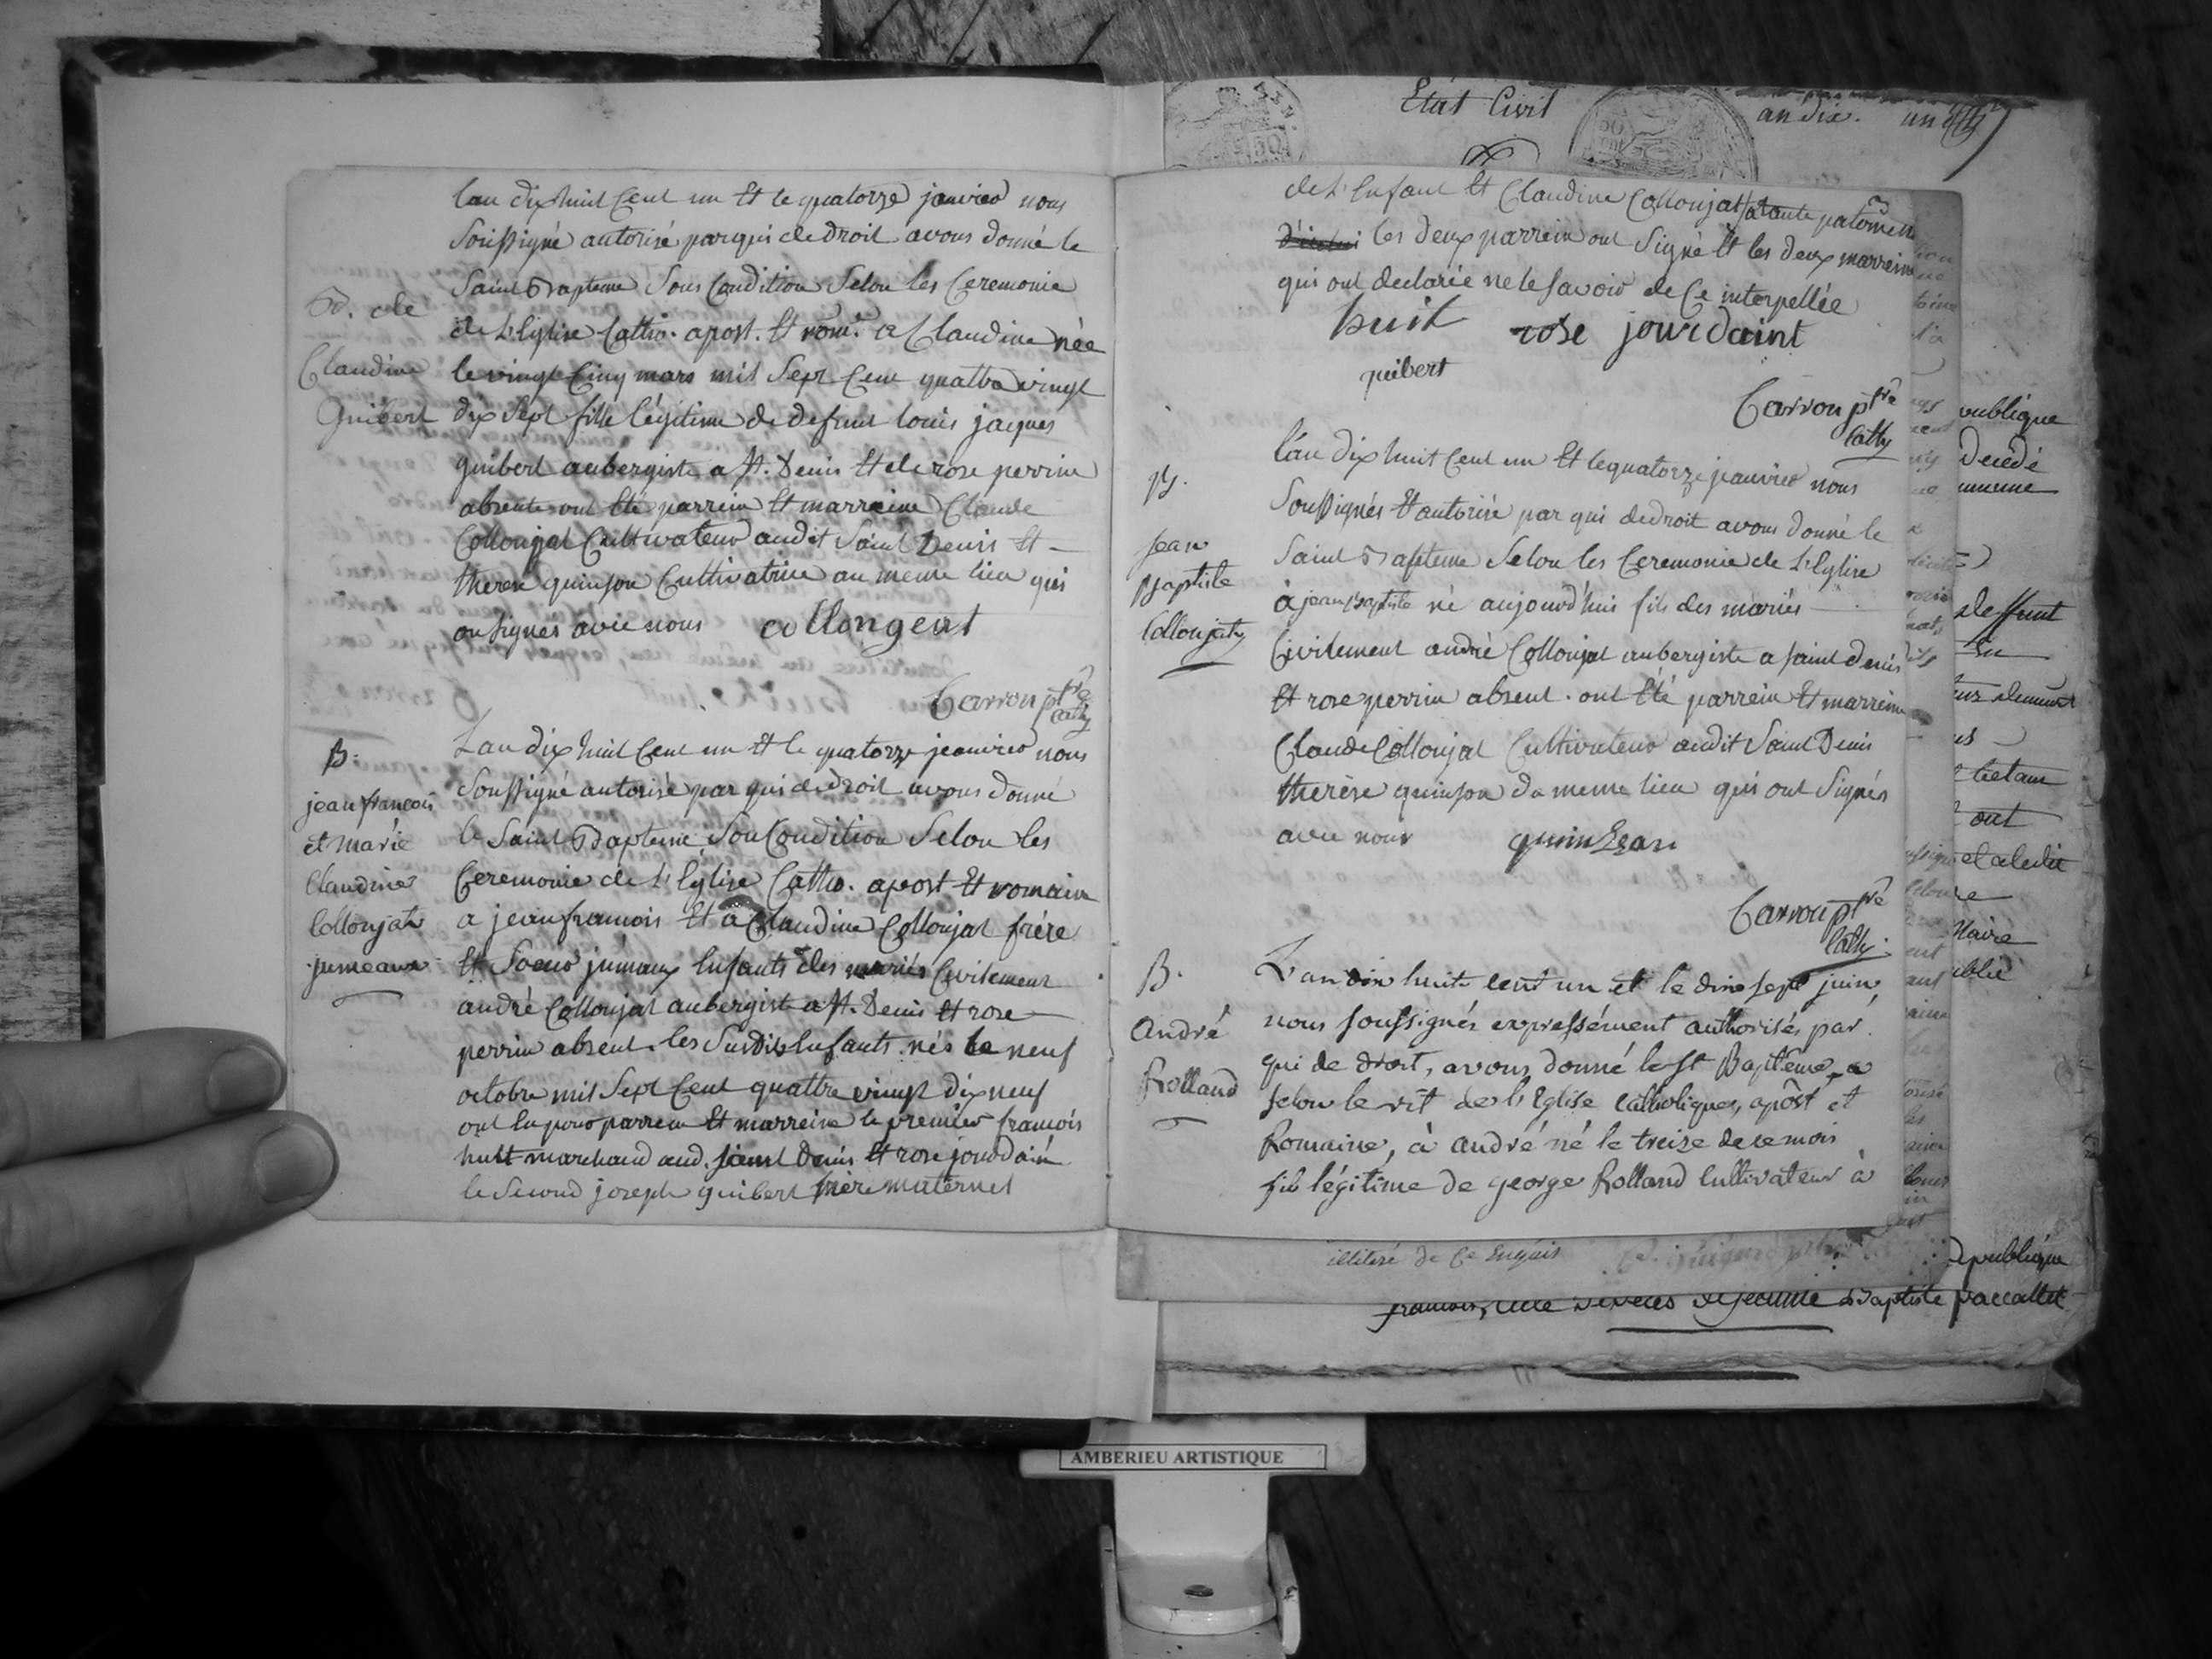 lan dix huit Cent un Et le quatorze janvier nous
Soussigné autorisé par qui de droit avons donné le
Saint Bapteme Sous Condition Selon les Ceremonie
de L'Eglise Catho. apost. Et rom.e a Claudine née
le vingt Cinq mars mil Sept Cent quattre vingt
dix Sept fille légitime de defunt louis jaques
guibert aubergiste a St. Denis Et de rose perrin
absente ont Eté parrein Et marreine Claude
Collonjat Cultivateur audit Saint Denis Et
therese quinson Cultivatrice au meme lieu qui
on signés avec nous collongeat
Carron ptre cathq
B. de
Claudine
Guibert
Lan dix huit Cent un Et le quatorze jeanvier nous
Soussigné autorisé par qui de droit avons donné
le Saint Bapteme Sou Condition Selon les
Ceremonie de L'Eglise Catho. apost Et romain
a jean francois Et a Claudine Collonjat frère
Et Soeur jumaux Enfants des mariés Civilement
andré Collonjat aubergiste a St. Denis Et rose
perrin absent. les Susdits Enfants nés le neuf
octobre mil Sept Cent quattre vingt dix neuf
ont Eu pour parrein Et marreine le premier francois
huit marchand aud. saint Denis Et rose jourdain
le Second joseph guibert frère maternel
B.
jean francois
et marie
Claudine
Collonjat
jumeaux
Etat Civil
an dix.
de L'Enfant Et Claudine Collonjat tante paternelle
les deux parrein ont Signé Et les deux marreine
qui ont declarée ne le Savoir de Ce interpellée
huit rose jourdaint
guibert
Carron ptre
cathq
B.
jean
Baptiste
Collonjat
L'an dix huit Cent un Et le quatorze jeanvier nous
Soussignés Et autorisé par qui de droit avons donné le
Saint Bapteme Selon les Ceremonie de L'Eglise
à jean Baptiste né aujourd'hui fils des mariés
Civilement andré Collonjat aubergiste a saint denis
Et rose perrin absent. ont Eté parrein Et marreine
Claude Collonjat Cultivateur audit Saint Denis
therèse quinson du meme lieu qui ont Signés
avec nous quinson
Carron ptre
cathq.
B.
André
Rolland
L'an dix huite cent un et le dix sept juin,
nous soussignés expressément authorisés par
qui de droit, avons donné le St Baptême
selon le rit de l'Eglise catholique, apost et
Romaine, à andré né le treize de ce mois
fils légitime de george Rolland cultivateur à
illitéré de Ce Enquis
publique
Decedé
deffunt
ont
Maire
publique
Baptiste paccallet
AMBERIEU ARTISTIQUE